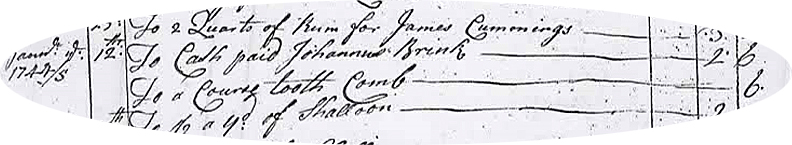 To 2 Quarts of Rum for James Cummings 3
Janry ye 12th To Cash paid Johannus Brink 2 6
1744/5
To a Course tooth Comb 6
To 1/2 a yd of Shalloon 2